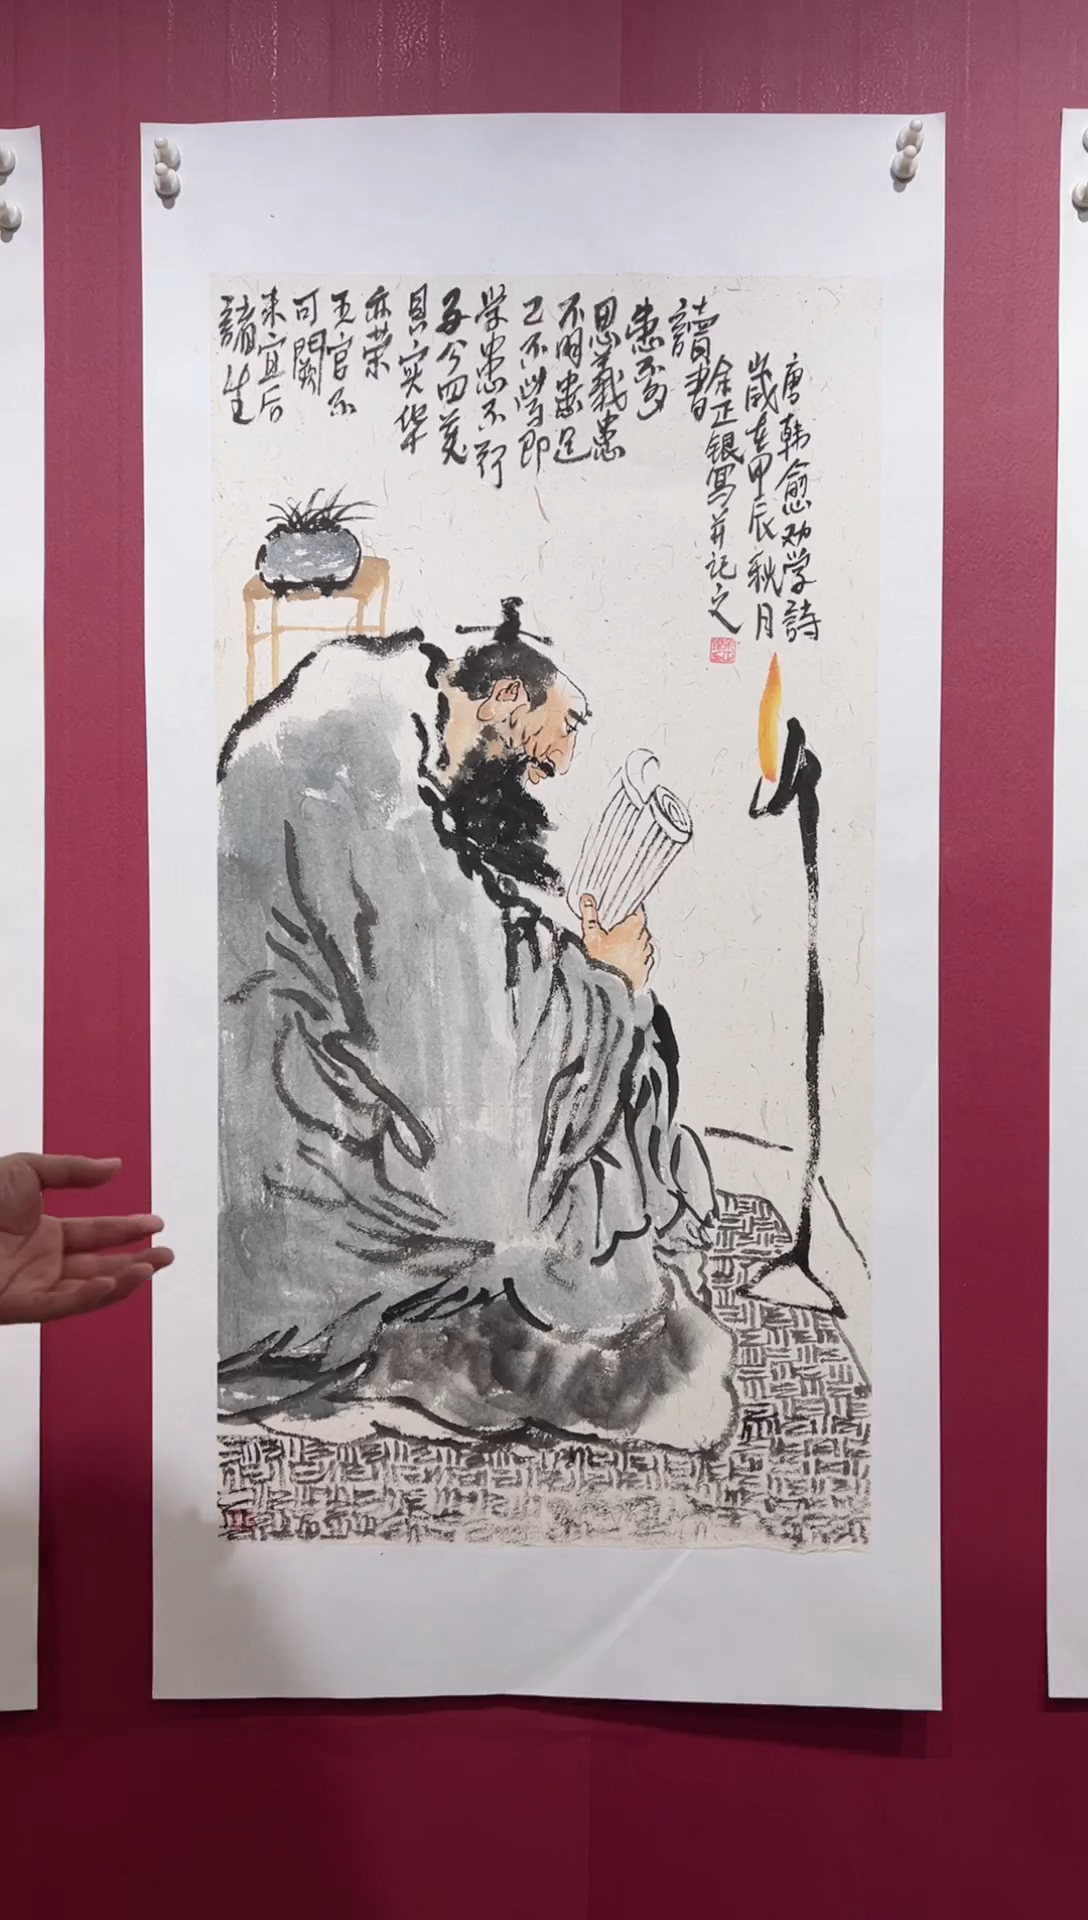 唐韩愈劝学詩
歲在甲辰秋月
余正银写并记之
讀書
患不多
思義患
不明患足
已不学即
学患不行
子今四美
具实华
亦荣
王官不
可闕
未宜后
諸生